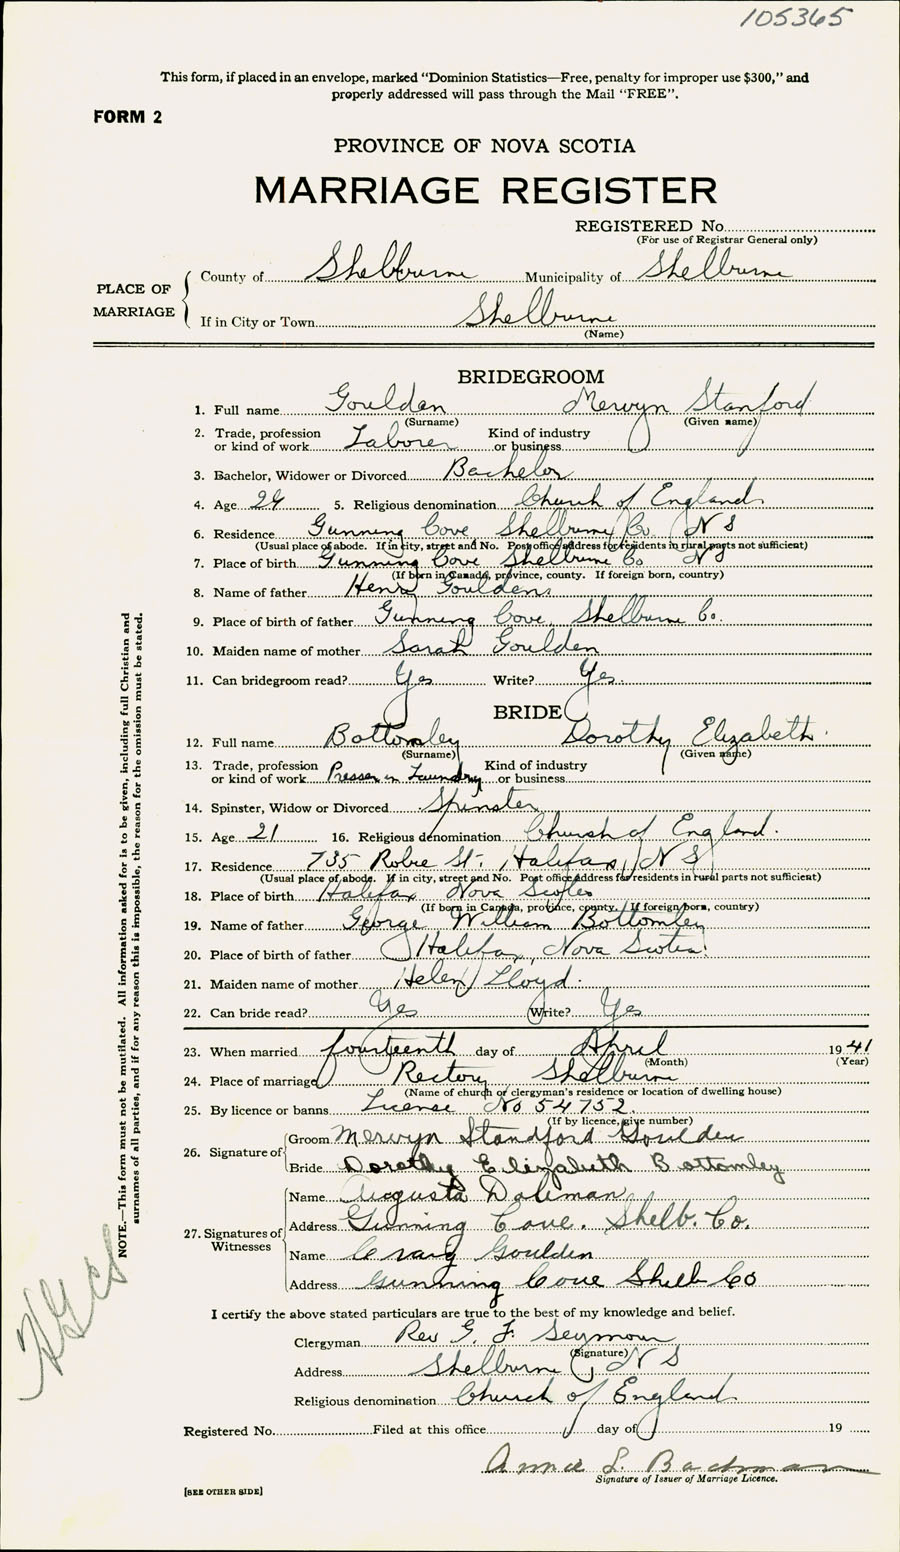 105365
This form, if placed in an envelope, marked “Dominion Statistics—Free, penalty for improper use $300,” and
properly addressed will pass through the Mail “FREE”.
FORM 2
PROVINCE OF NOVA SCOTIA
MARRIAGE REGISTER
REGISTERED No.
(For use of Registrar General only)
PLACE OF MARRIAGE
County of Shelburne Municipality of Shelburne
If in City or Town Shelburne
(Name)
BRIDEGROOM
1. Full name Goulden Mervyn Stanford
(Surname) (Given name)
2. Trade, profession or kind of work Laborer Kind of industry or business
3. Bachelor, Widower or Divorced Bachelor
4. Age 24 5. Religious denomination Church of England
6. Residence Gunning Cove Shelburne Co N S
(Usual place of abode. If in city, street and No. Post office address for residents in rural parts not sufficient)
7. Place of birth Gunning Cove Shelburne Co N S
(If born in Canada, province, county. If foreign born, country)
8. Name of father Henry Goulden
9. Place of birth of father Gunning Cove Shelburne Co.
10. Maiden name of mother Sarah Goulden
11. Can bridegroom read? Yes Write? Yes.
BRIDE
12. Full name Bottomley Dorothy Elizabeth
(Surname) (Given name)
13. Trade, profession or kind of work Presser in Laundry Kind of industry or business
14. Spinster, Widow or Divorced Spinster
15. Age 21 16. Religious denomination Church of England.
17. Residence 735 Robie St. Halifax, N S
(Usual place of abode. If in city, street and No. Post office address for residents in rural parts not sufficient)
18. Place of birth Halifax Nova Scotia
(If born in Canada, province, county. If foreign born, country)
19. Name of father George William Bottomley
20. Place of birth of father Halifax, Nova Scotia.
21. Maiden name of mother Helen Lloyd.
22. Can bride read? Yes Write? Yes
23. When married fourteenth day of April 1941
(Month) (Year)
24. Place of marriage Rectory Shelburne
(Name of church or clergyman's residence or location of dwelling house)
25. By licence or banns License No 54752.
(If by licence, give number)
26. Signature of Groom Mervyn Standford Goulden
Bride Dorothy Elizabeth Bottomley
27. Signatures of Witnesses
Name Augusta Doleman
Address Gunning Cove. Shelb. Co.
Name Craig Goulden
Address Gunning Cove Shelb Co
I certify the above stated particulars are true to the best of my knowledge and belief.
Clergyman Rev G. F. Seymour
(Signature)
Address Shelburne, N S
Religious denomination Church of England
Registered No. Filed at this office day of 19
Annie L. Bachman
Signature of Issuer of Marriage Licence.
[SEE OTHER SIDE]
NOTE.—This form must not be mutilated. All information asked for is to be given, including full Christian and
surnames of all parties, and if for any reason this is impossible, the reason for the omission must be stated.